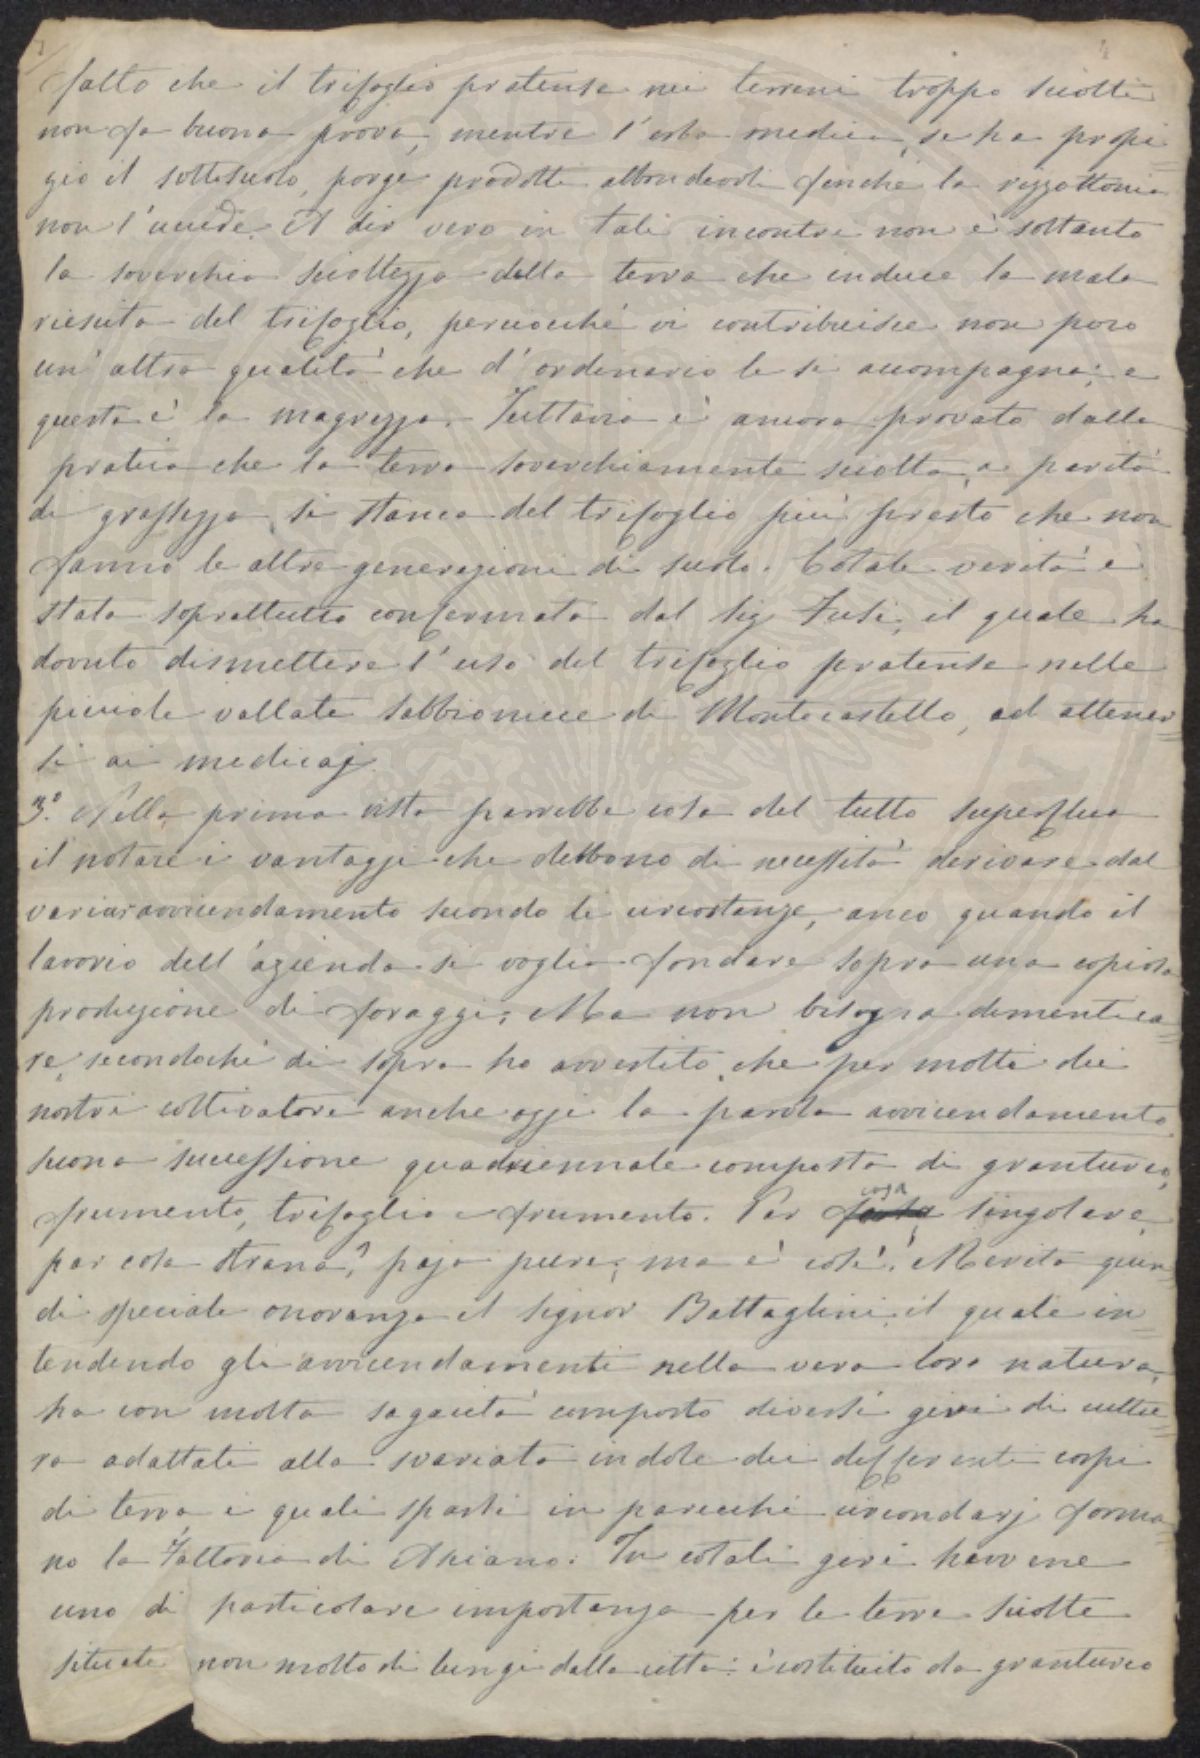 fatto che il trifoglio pratense nei terreni troppo sciolti
non fa buona prova, mentre l'erba medica, se ha propi-
zio il sottosuolo, porge prodotti abbondevoli finchè la rizzottonia
non l'uccide. A dir vero in tali incontri non è soltanto
la soverchia scioltezza della terra che induce la mala
riescita del trifoglio, perciocchè vi contribuisce non poco
un'altra qualità che d'ordinario le si accompagna; e
questa è la magrezza. Tuttavia è ancora provato dalla
pratica che la terra soverchiamente sciolta, a parità
di grassezza, si stanca del trifoglio più presto che non
fanno le altre generazioni di suolo. Cotale verità è
stata soprattutto confermata dal Sig Tusi, il quale ha
dovuto dismettere l'uso del trifoglio pratense nelle
picciole vallate sabbionicce di Montecastello, ed attener-
si ai medicaj.
3.º Nella prima vista parrebbe cosa del tutto superflua
il notare i vantaggi che debbono di necessità derivare dal
variar avvicendamento secondo le circostanze, anco quando il
lavorio dell'azienda si voglia fondare sopra una copiosa
produzione di foraggi; Ma non bisogna dimentica-
re, secondochè di sopra ho avvertito, che per molti dei
nostri coltivatori anche oggi la parola avvicendamento
suona successione quadriennale composta di granturco,
frumento, trifoglio e frumento. Par cosa singolare,
par cosa strana?, paja pure; ma è così! Merita quin-
di speciale onoranza il Signor Battaglini, il quale in-
tendendo gli avvicendamenti nella vera loro natura,
ha con molta sagacità composto diversi giri di cultu-
ra adattati alla svariata indole dei differenti corpi
di terra i quali sparti in parecchi circondarj forma-
no la Fattoria di Chiano. In cotali giri havvene
uno di particolare importanza per le terre sciolte
situate non molto di lungi dalla città: è costituito da granturco